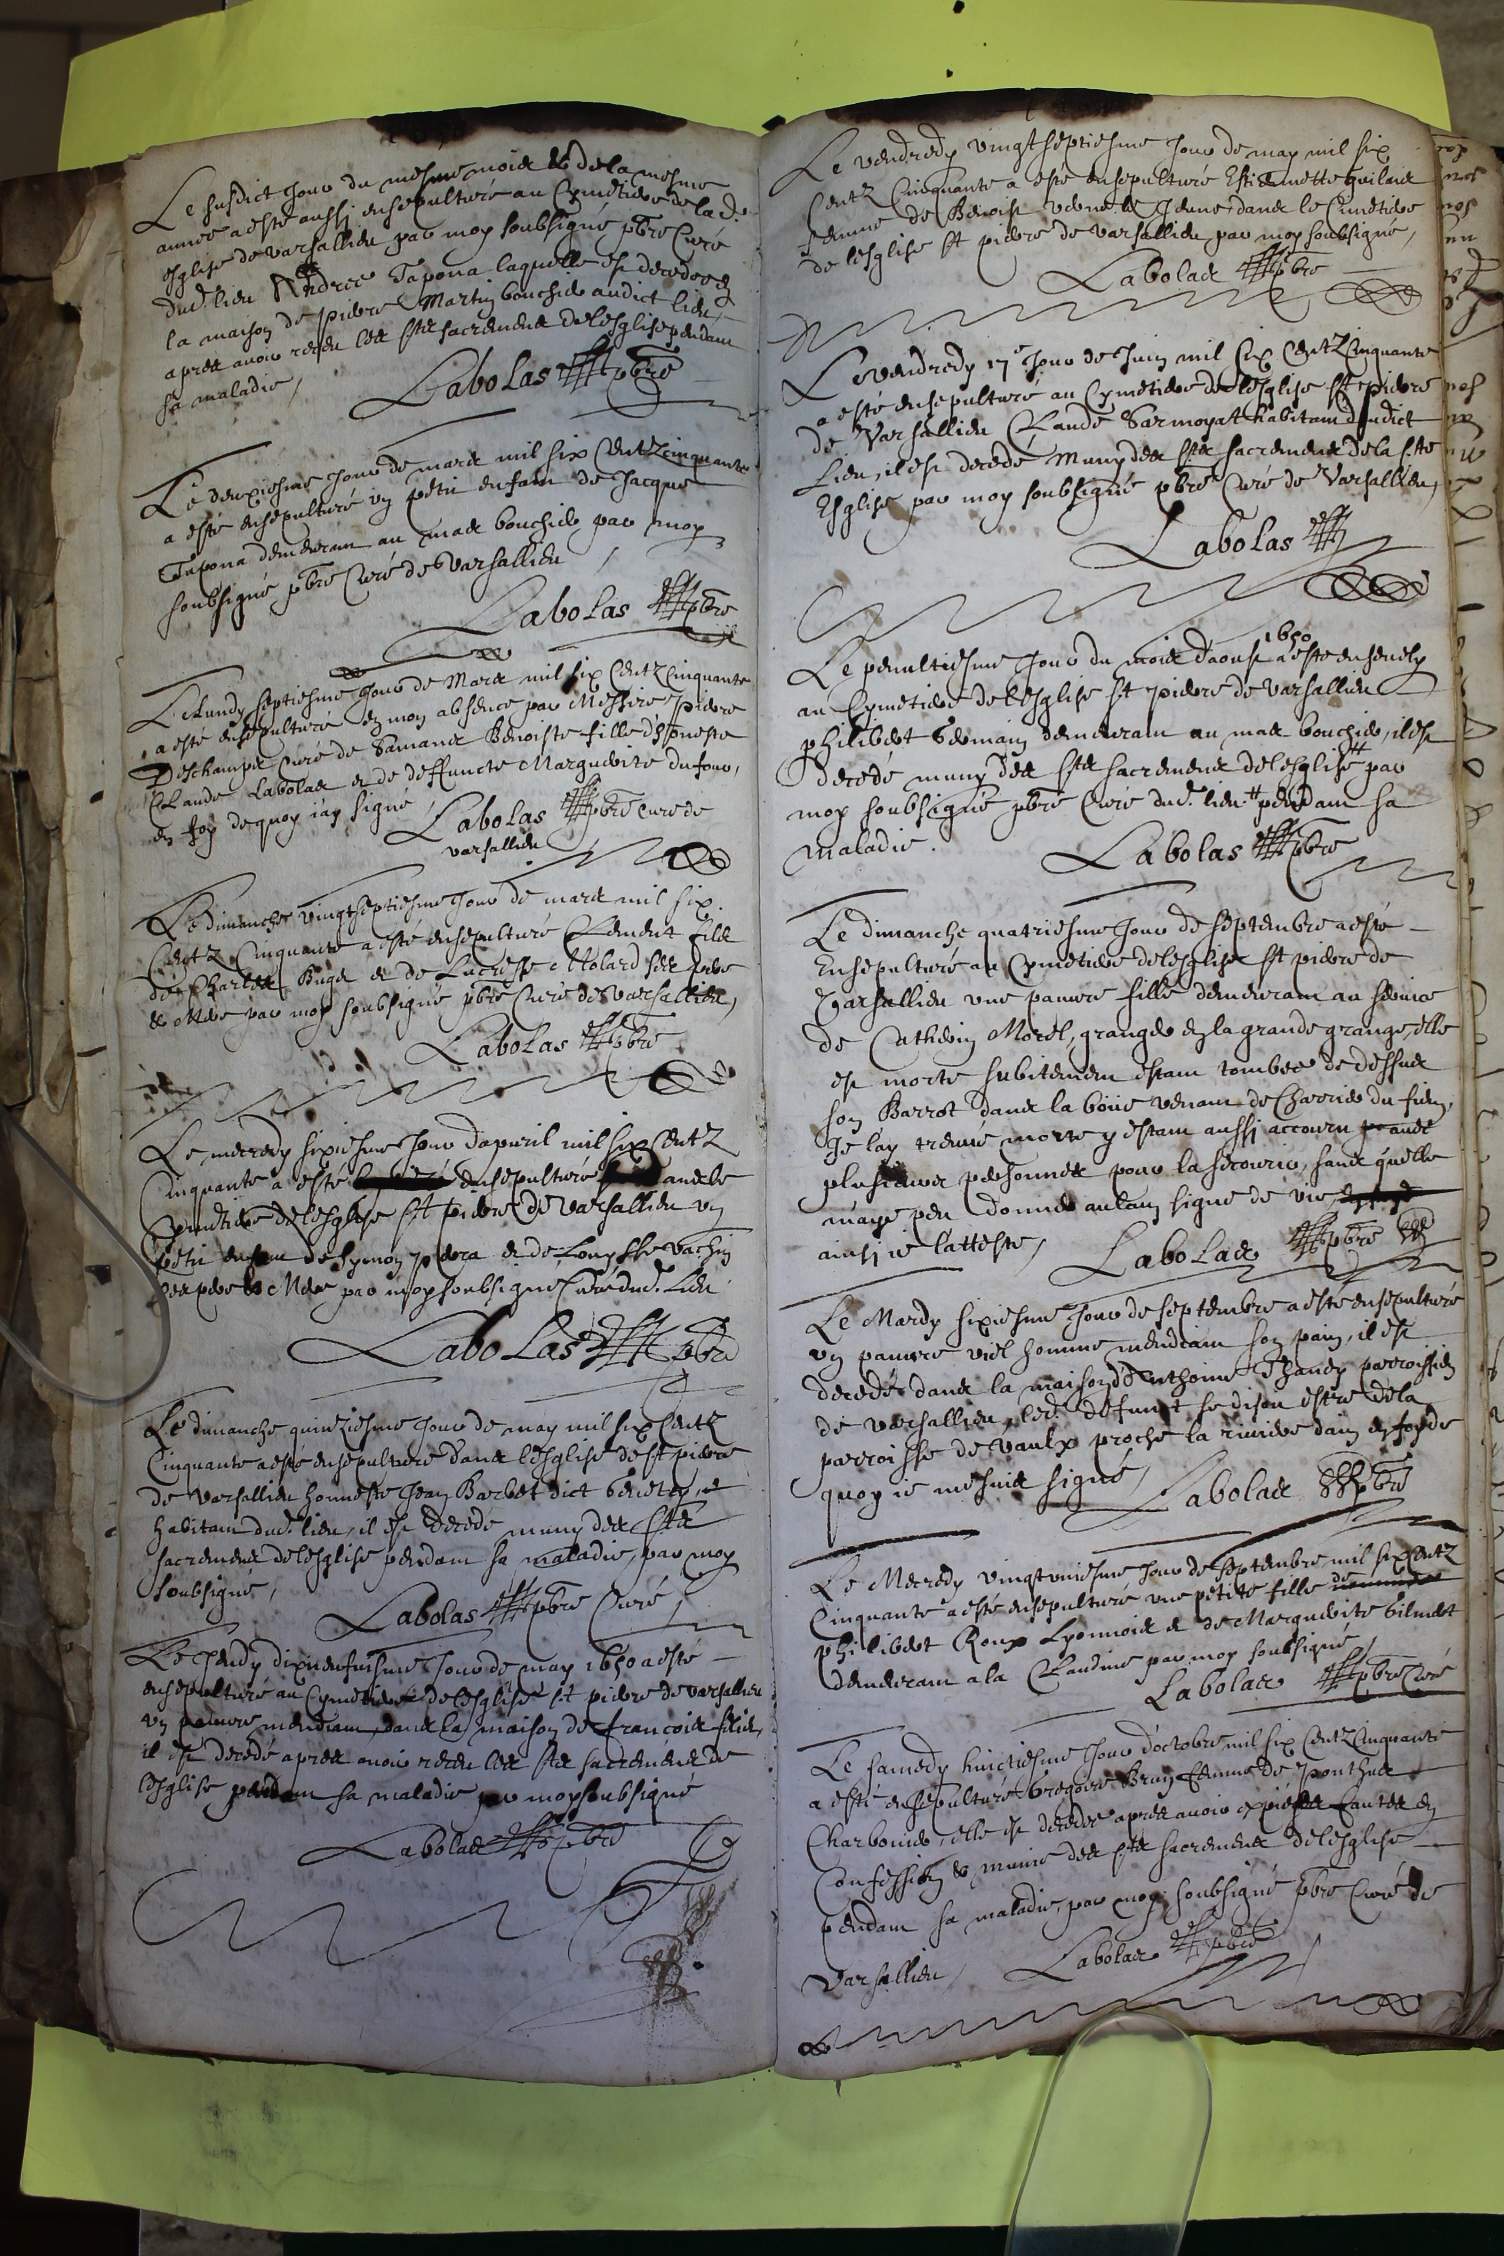 Le susdict jour du mesme mois et de la mesme
annee a esté aussj ensepulturé au Cymetiere de lad.
esglise de varsallieu par moy soubsigné pbre Curé
dud. lieu Andree Tapona laquelle est decedee en
la maison de pierre Martin bouchid audict lieu
apres avoir receu les sts sacremens de lesglise pendam
sa maladie,
Labolas pbre
Le deuxiesme jour de mars mil six Centz cinquante
a esté ensepulturé un petit enfam de Jacque
Tapona demeuram au mas bouchid par moy
soubsigné pbre Curé de Varsallieu
Labolas pbre
Le Lundy septiesme jour de Mars mil six Centz Cinquante
a esté ensepulture en mon absence par Messire pierre
Deschamps Curé de Samans Benoiste fille d'honneste
Claude Labolas et de deffuncte Marguerite dufour,
en foy dequoy iay signé,
Labolas pbre curé de
varsallieu
Le dimanche vingtseptiesme jour de mars mil six
Centz Cinquante a esté ensepulturé Clement filz
de Charles Buget et de Lucresse Molard ses pere
et Mere par moy soubsigné pbre Curé de Varsallieu,
Labolas pbre
Le mecredy sixiesme jour dapuril mil six Centz
Cinquante a esté ensepulturé dans le
Cymetiere de lesglise St pierre de Varsallieu un
petit enfam de Symon pera et de Louysse vachin
ses pere et Mere par moy soubsigné Curé dud. Lieu
Labolas pbre
Le dimanche quinziesme jour de may mil six Centz
Cinquante a esté ensepulturé dans lesglise de st pierre
de Varsallieu honneste Jean Barbet dict
habitam dud. lieu, il est decedé muny des sts
sacremens de lesglise pendam sa maladie, par moy
soubsigné,
Labolas pbre Curé,
Le Jeudy dixneufuiesme jour de may 1650 a esté
ensepulturé au Cymetiere de lesglise st pierre de varsallieu
un pauvre mendiam, dans la maison de francois filion,
il est decedé apres avoir receu les sts sacremens de
lesglise pendam sa maladie par moy soubsigné
Labolas pbre
Le vendredy vingtseptiesme jour de may mil six
Centz Cinquante a esté ensepulturé Estiennette
femme de Benoist le Jeune dans le Cimetiere
de lesglise st pierre de varsallieu par moy soubsigné,
Labolas pbre
Le vendredy 17e jour de Juin mil six Centz Cinquante
a esté ensepulturé au Cymetiere de lesglise st pierre
de Varsallieu Claude Sarmoyat habitam dudict
Lieu, il est decedé muny des sts sacremens de la ste
Esglise par moy soubsigné pbre Curé de Varsallieu,
Labolas
1650
Le penultiesme jour du mois daoust a esté ensevely
au Cymetiere de lesglise st pierre de varsallieu
philibert Germain demeuram au mas bouchid, il est
decedé muny des sts sacremens de lesglise par
moy soubsigné pbre Curé dud. lieu pendam sa
maladie.
Labolas pbre
Le dimanche quatriesme jour de septembre a esté
Ensepulturé au Cymetiere de lesglise st pierre de
Varsallieu une pauvre fille demeuram au service
de Catherin Morel, granger en la grande grange, elle
est morte subitemem estam tombee de dessus
son Barrot dans la boüe venam de Charrier du fien,
Je lay treuvé morte y estam aussj accouru avec
plusieurs personnes pour la secourir, sans quelle
m'aye peu donner aulcun signe de vie
ainsj ie latteste,
Labolas pbre
Le Mardy sixiesme jour de septembre a esté ensepulturé
un pauvre viel homme mendiam son pain, il est
decedé dans la maison d'Anthoine Chaney parroissien
de varsallieu, led. defunct se disoit estre de la
parroisse de Vaulx proche la riviere dain en foy de
quoy ie me suis signé,
Labolas pbre
Le Mecredy vingtuniesme jour de septembre mil six Centz
Cinquante a esté ensepulturé une petite fille de
philibert Roux Lyonnois et de Marguerite
demeuram a la Claudine par moy soubsigné,
Labolas pbre Curé
Le samedy huictiesme jour d'octobre mil six Centz Cinquante
a esté ensepulturé Gregoire Brun femme de Ponthus
Charbonier, elle est decedee apres avoir expié ses fautes en
Confession et munie des sts sacremens de lesglise
pendam sa maladie, par moy soubsigné pbre Curé de
Varsallieu,
Labolas pbre